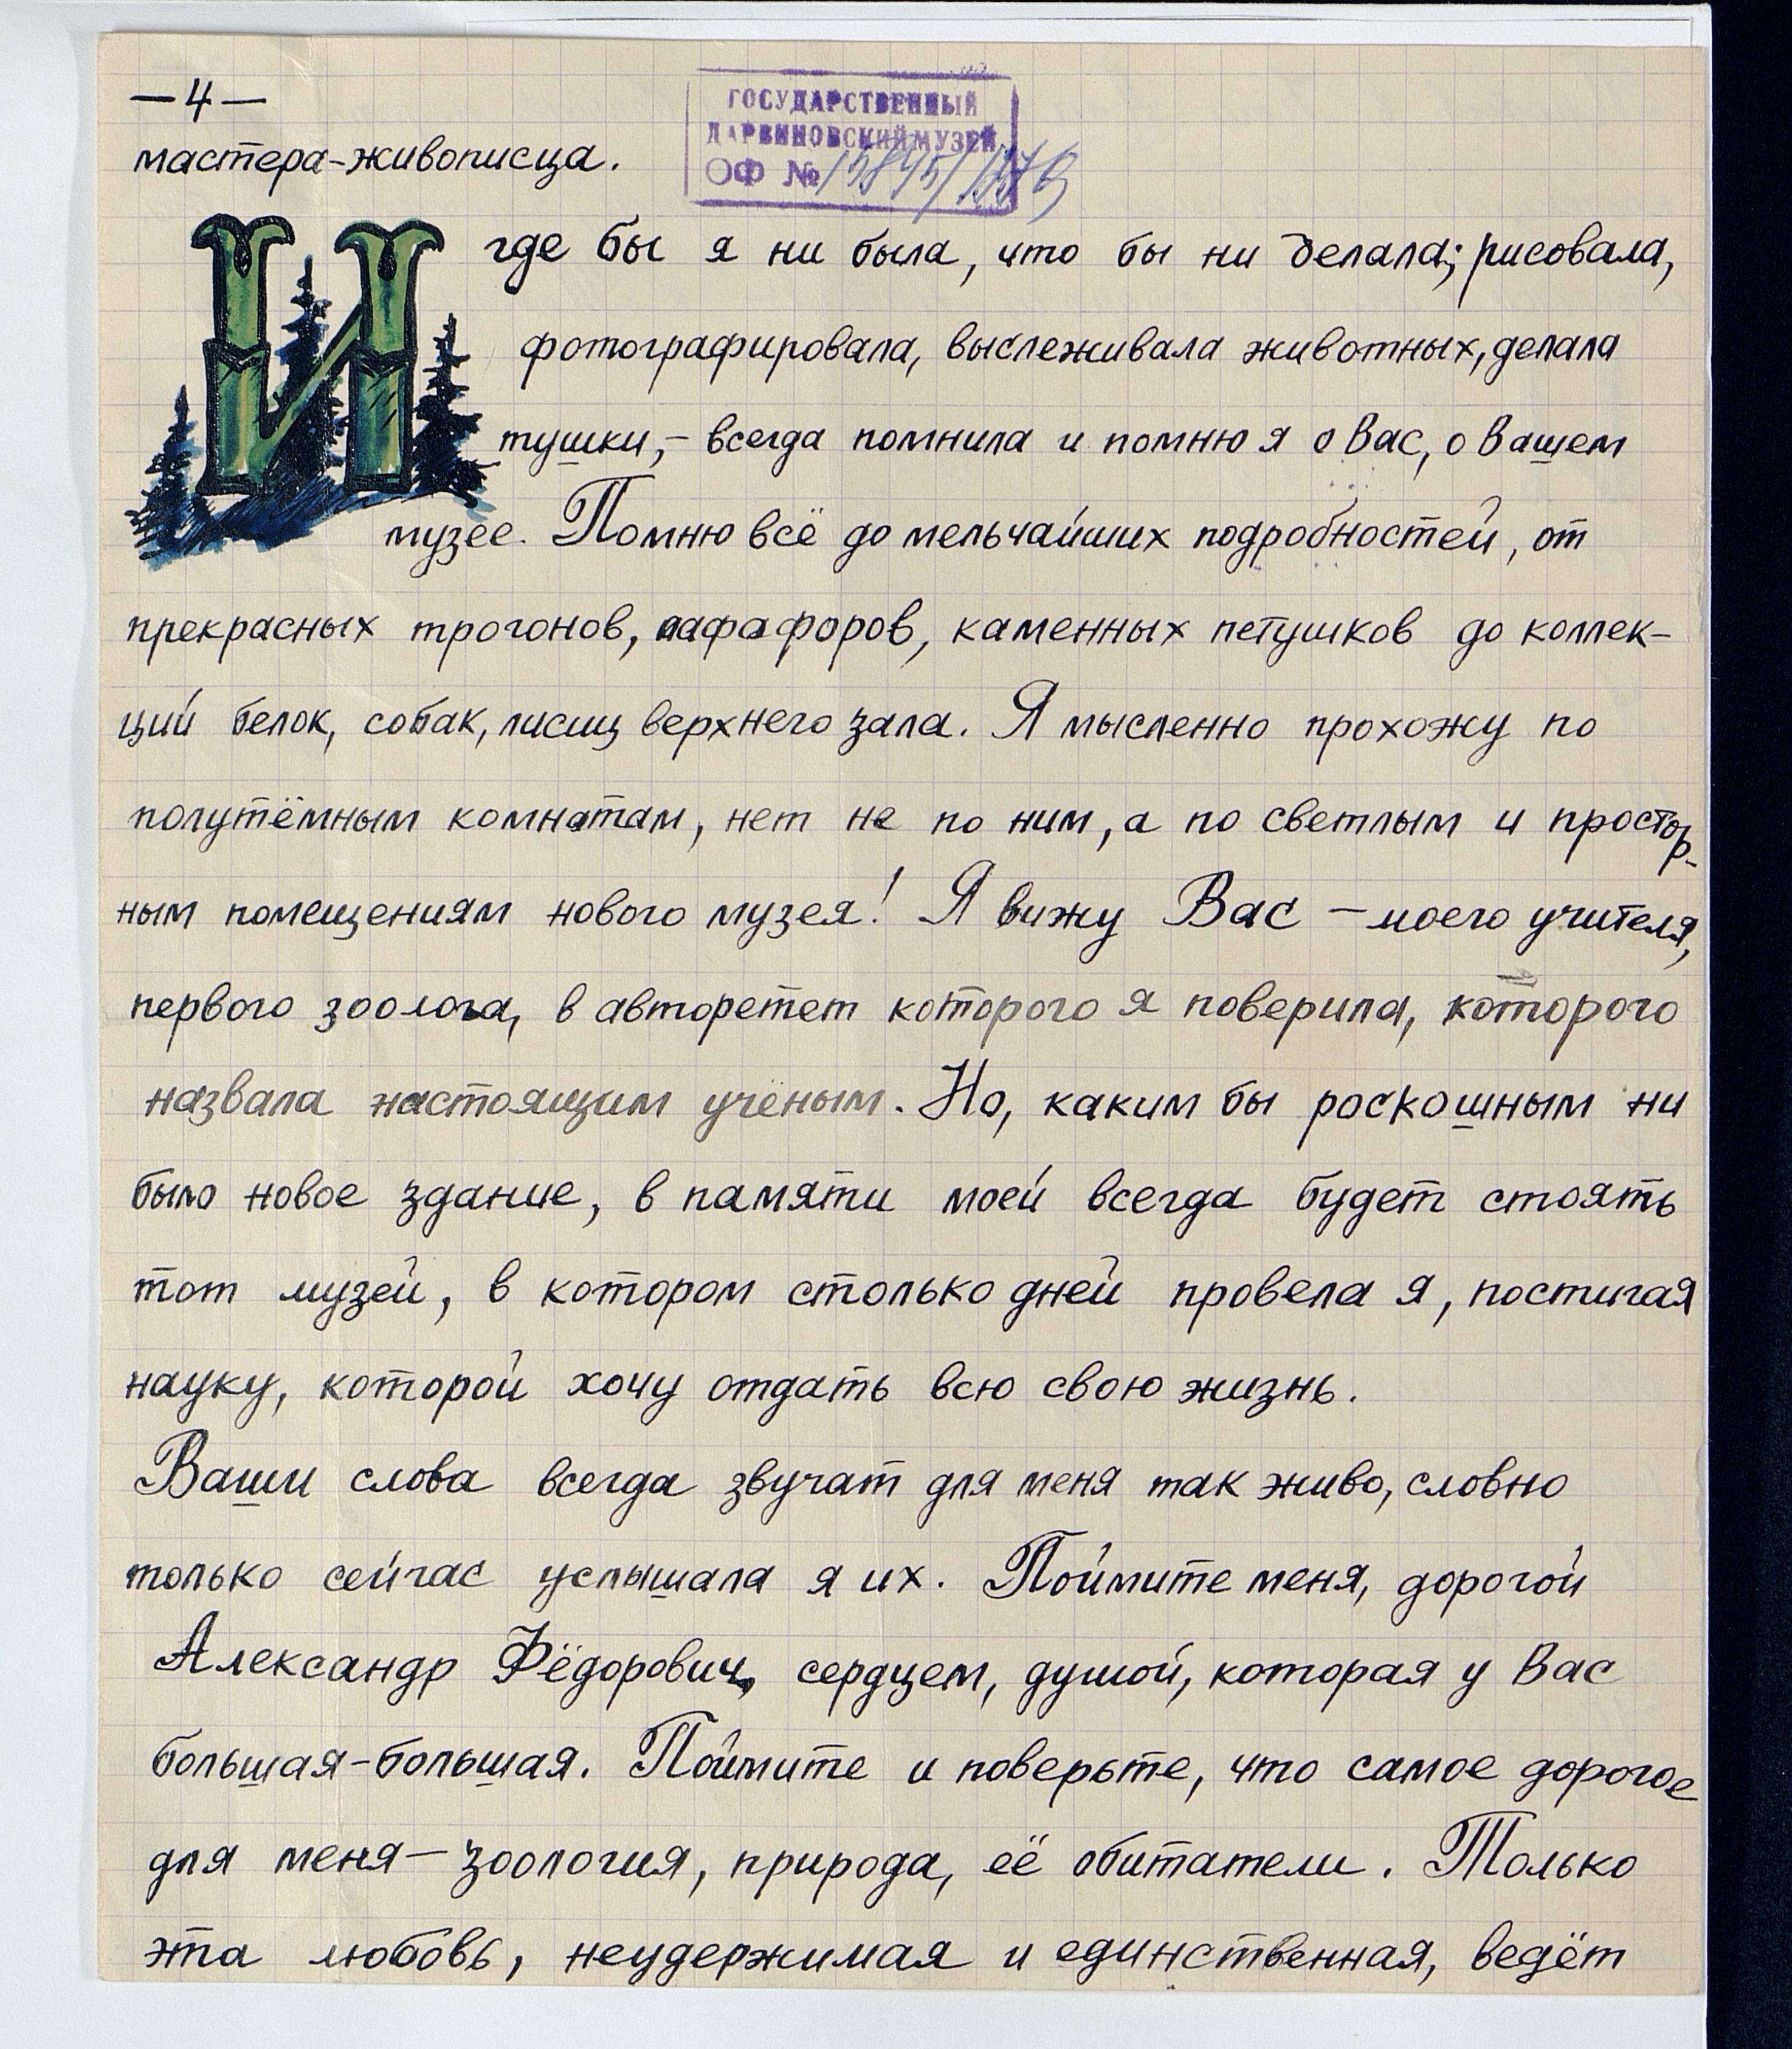 —4—
ГОСУДАРСТВЕННЫЙ
ДАРВИНОВСКИЙ МУЗЕЙ
ОФ №
мастера-живописца.
И где бы я ни была, что бы ни делала; рисовала,
фотографировала, выслеживала животных, делала
тушки, – всегда помнила и помню я о Вас, о Вашем
музее. Помню всё до мельчайших подробностей, от
прекрасных трогонов, лафафоров, каменных петушков до коллек-
ций белок, собак, лисиц верхнего зала. Я мысленно прохожу по
полутёмным комнатам, нет не по ним, а по светлым и простор-
ным помещениям нового музея! Я вижу Вас – моего учителя,
первого зоолога, в авторетет которого я поверила, которого
назвала настоящим учёным. Но, каким бы роскошным ни
было новое здание, в памяти моей всегда будет стоять
тот музей, в котором столько дней провела я, постигая
науку, которой хочу отдать всю свою жизнь.
Ваши слова всегда звучат для меня так живо, словно
только сейчас услышала я их. Поймите меня, дорогой
Александр Фёдорович, сердцем, душой, которая у Вас
большая-большая. Поймите и поверьте, что самое дорогое
для меня – зоология, природа, её обитатели. Только
эта любовь, неудержимая и единственная, ведёт